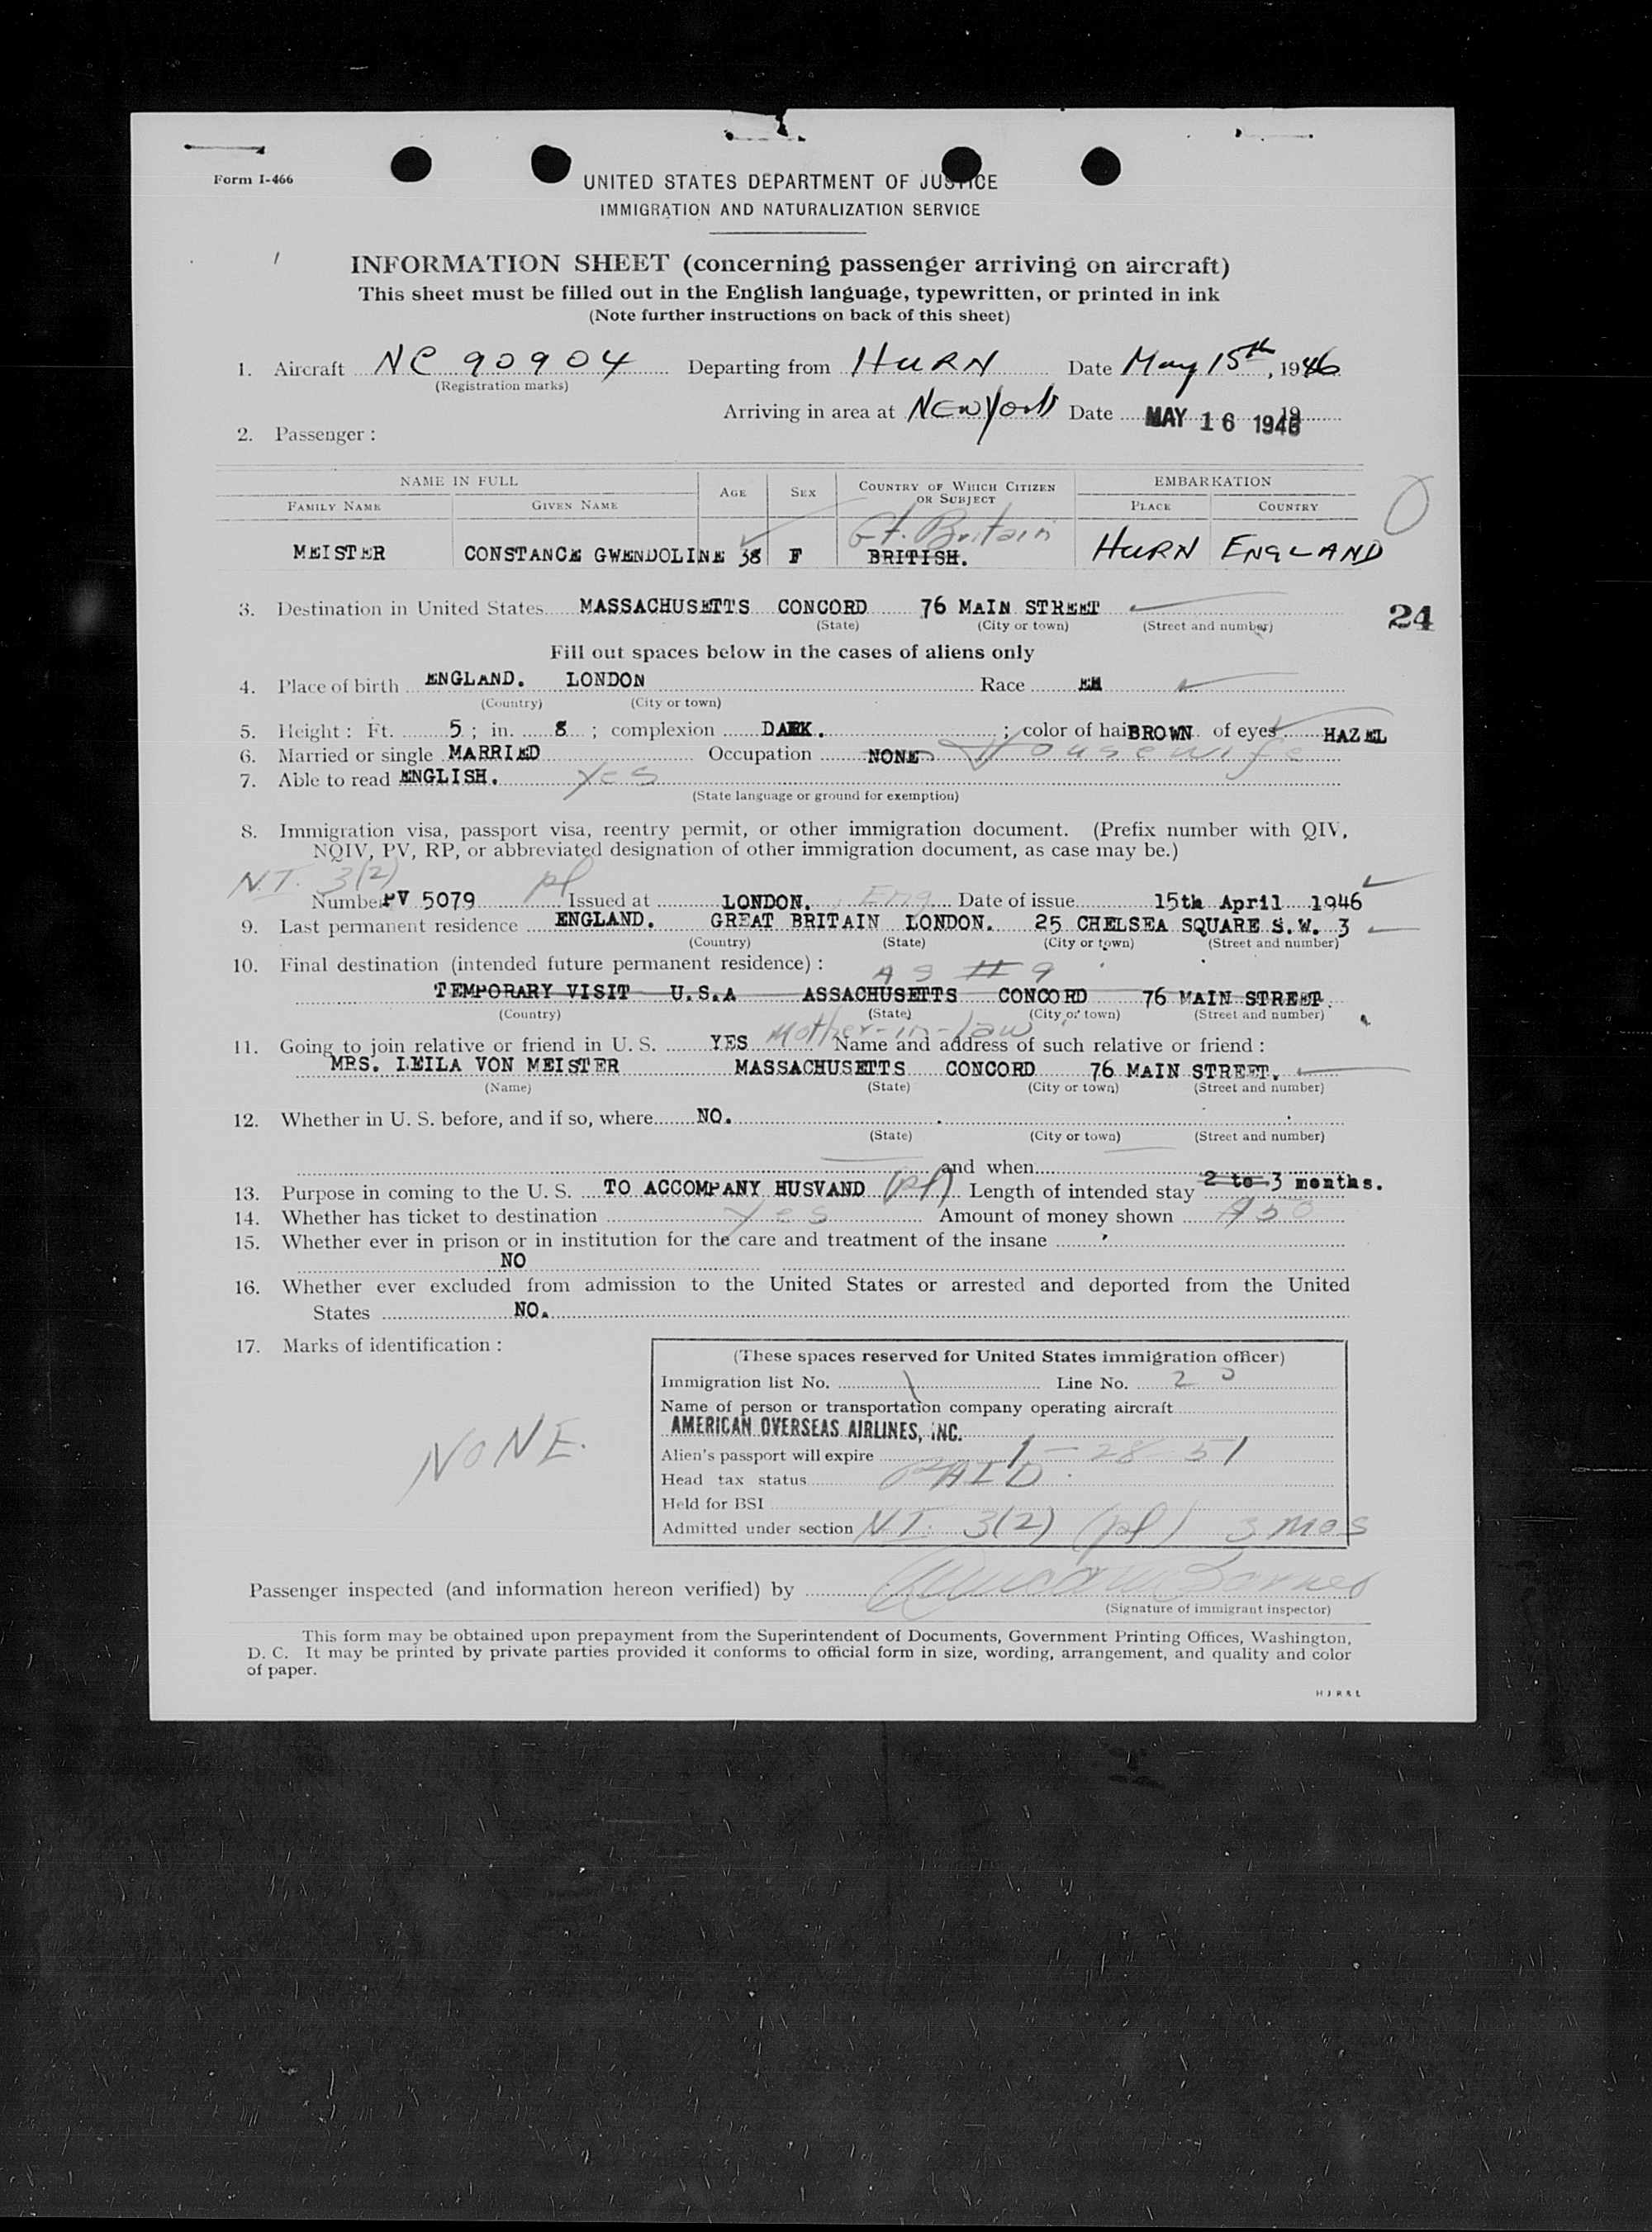 Form I-466
UNITED STATES DEPARTMENT OF JUSTICE
IMMIGRATION AND NATURALIZATION SERVICE
INFORMATION SHEET (concerning passenger arriving on aircraft)
This sheet must be filled out in the English language, typewritten, or printed in ink
(Note further instructions on back of this sheet)
1. Aircraft NC 90904 Departing from HURN Date May 15th, 1946
(Registration marks)
Arriving in area at New York Date MAY 16 1946 19
2. Passenger :
NAME IN FULL AGE SEX COUNTRY OF WHICH CITIZEN OR SUBJECT EMBARKATION
FAMILY NAME GIVEN NAME PLACE COUNTRY
Gt. Britain
MEISTER CONSTANCE GWENDOLINE 38 F BRITISH. HURN ENGLAND
3. Destination in United States MASSACHUSETTS CONCORD 76 MAIN STREET
(State) (City or town) (Street and number)
24
Fill out spaces below in the cases of aliens only
4. Place of birth ENGLAND. LONDON Race
(Country) (City or town)
5. Height : Ft. 5 ; in. 8 ; complexion DARK. ; color of hair BROWN of eyes HAZEL
6. Married or single MARRIED Occupation NONE Housewife
7. Able to read ENGLISH. Yes
(State language or ground for exemption)
8. Immigration visa, passport visa, reentry permit, or other immigration document. (Prefix number with QIV,
NQIV, PV, RP, or abbreviated designation of other immigration document, as case may be.)
N.T. 3(2) pl
Number PV 5079 Issued at LONDON. Eng Date of issue 15th April 1946
9. Last permanent residence ENGLAND. GREAT BRITAIN LONDON. 25 CHELSEA SQUARE S.W. 3
(Country) (State) (City or town) (Street and number)
10. Final destination (intended future permanent residence) :
AS # 9
TEMPORARY VISIT U.S.A ASSACHUSETTS CONCORD 76 MAIN STREET.
(Country) (State) (City or town) (Street and number)
11. Going to join relative or friend in U. S. YES Mother-in-law Name and address of such relative or friend :
MRS. LEILA VON MEISTER MASSACHUSETTS CONCORD 76 MAIN STREET.
(Name) (State) (City or town) (Street and number)
12. Whether in U. S. before, and if so, where NO.
(State) (City or town) (Street and number)
and when
13. Purpose in coming to the U. S. TO ACCOMPANY HUSVAND (pl) Length of intended stay 2 to 3 months.
14. Whether has ticket to destination Yes Amount of money shown
15. Whether ever in prison or in institution for the care and treatment of the insane
NO
16. Whether ever excluded from admission to the United States or arrested and deported from the United
States NO.
17. Marks of identification :
NONE.
(These spaces reserved for United States immigration officer)
Immigration list No. 1 Line No. 2
Name of person or transportation company operating aircraft
AMERICAN OVERSEAS AIRLINES, INC.
Alien's passport will expire 1-28-51
Head tax status PAID.
Held for BSI
Admitted under section N.T. 3(2) (pl) 3 mos
Passenger inspected (and information hereon verified) by
(Signature of immigrant inspector)
This form may be obtained upon prepayment from the Superintendent of Documents, Government Printing Offices, Washington,
D. C. It may be printed by private parties provided it conforms to official form in size, wording, arrangement, and quality and color
of paper.